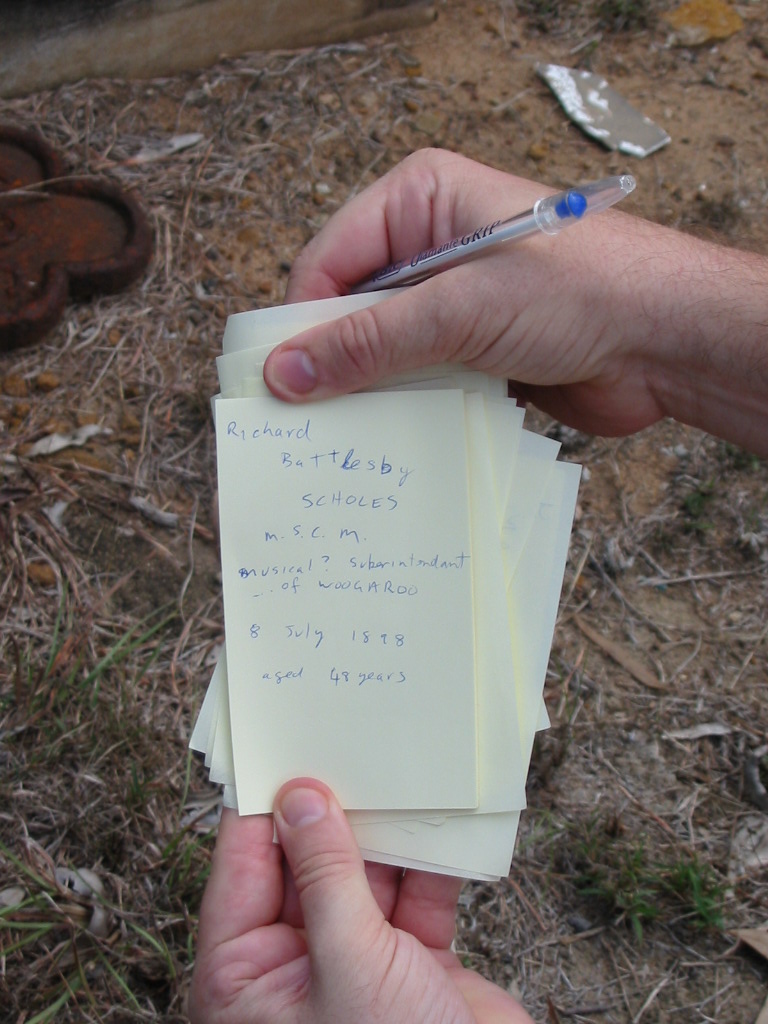 Richard
Battlesby
SCHOLES
M.S.C.M.
Musical? Suberintendant
... of WOOGAROO
8 July 1898
aged 48 years
GRIP